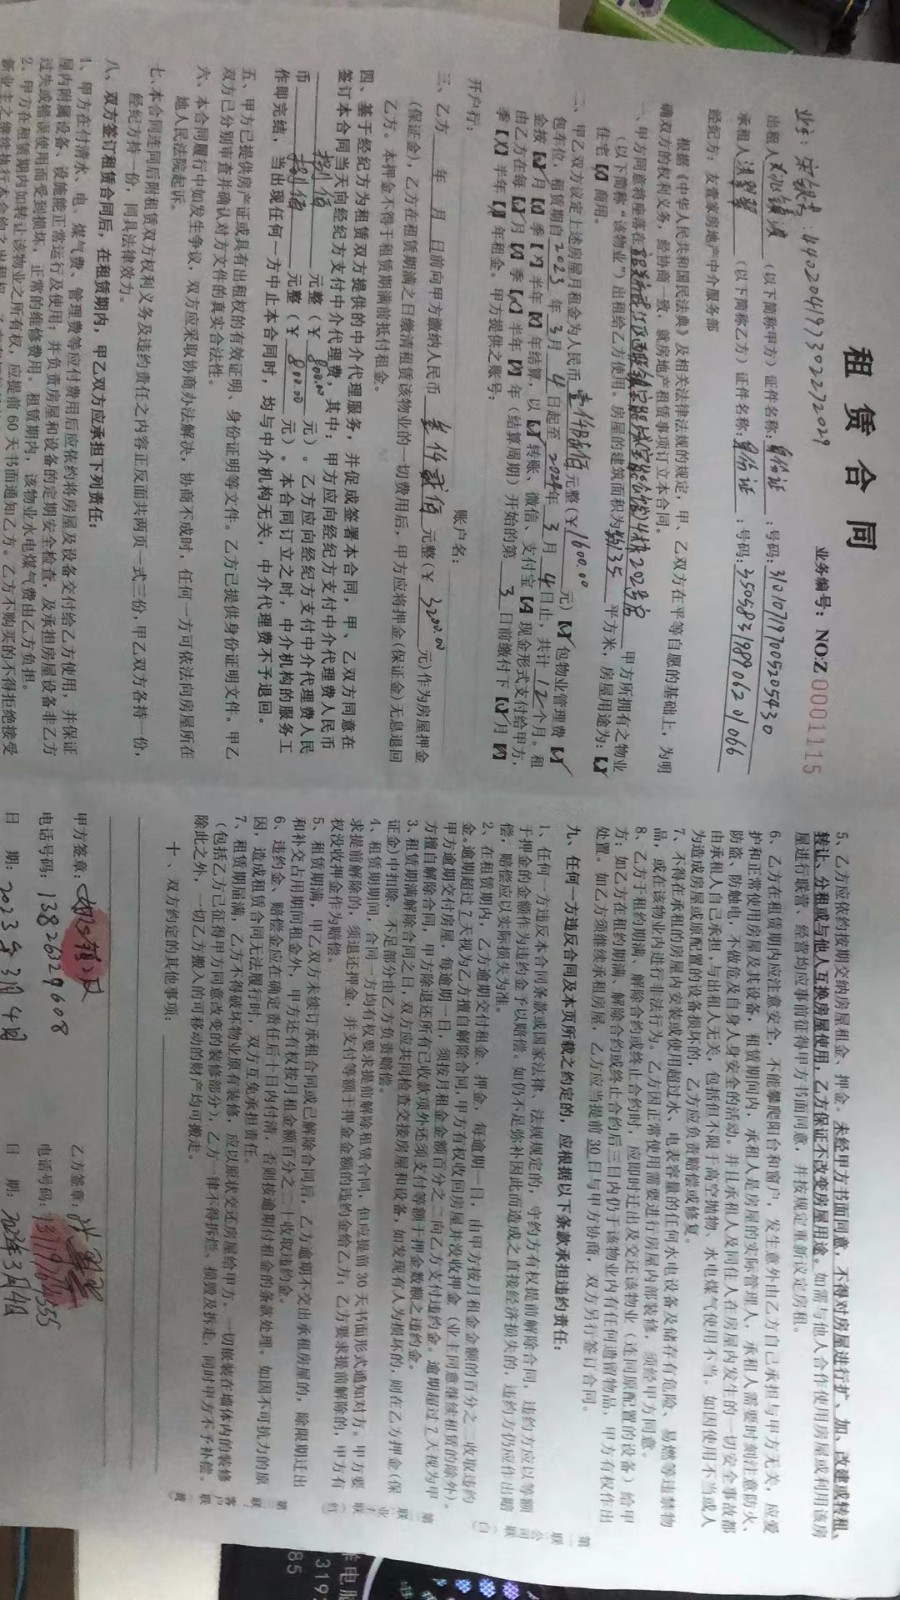 租赁合同
业务编号：NO:Z 0001115
业主：宋  ：440204197302272029
出租人  （以下简称甲方）证件名称：身份证：号码：310107197005205430
承租人 洪翠翠 （以下简称乙方）证件名称：身份证：号码：350583198906201066
经纪方：友壹家房地产中介服务部
根据《中华人民共和国民法典》及相关法律法规的规定，甲、乙双方在平等自愿的基础上，为明
确双方的权利义务，经协商一致，就房地产租赁事项订立本合同。
一、甲方同意将座落在  4栋202号房 甲方所拥有之物业
（以下简称“该物业”）出租给乙方使用。房屋的建筑面积为 35 平方米，房屋用途为：【√】
住宅【】商用。
二、甲乙双方议定上述房屋月租金为人民币 壹仟陆佰 元整（￥1600.00 元）【√】包物业管理费【√】
包车位，租赁期自2023年3月4日起至2024年3月4日止，共计12个月。租
金按【√】月【】季【】半年【】年结算，以【√】转账、微信、支付宝【】现金形式支付给甲方，
由乙方在每【√】月【】季【】半年【】年（结算周期）开始的第 3 日前缴付下【√】月【】
季【】半年【】年租金。甲方提供之账号：
开户行： 账户名：
三、乙方 年 月 日前向甲方缴纳人民币 叁仟贰佰 元整（￥3200.00 元)作为房屋押金
(保证金)，乙方在租赁期满之日缴清租赁该物业的一切费用后，甲方应将押金(保证金)无息退回
乙方。本押金不得于租赁期满前抵付租金。
四、基于经纪方为租赁双方提供的中介代理服务，并促成签署本合同，甲、乙双方同意在
签订本合同当天向经纪方支付中介代理费，其中：甲方应向经纪方支付中介代理费人民币
捌佰 元整（￥800.00 元）。乙方应向经纪方支付中介代理费人民
币 捌佰 元整（￥800.00 元）。本合同订立之时，中介机构的服务工
作即完结，当出现任何一方中止本合同时，均与中介机构无关，中介代理费不予退回。
五、甲方已提供房产证或具有出租权的有效证明、身份证明等文件。乙方已提供身份证明文件。甲乙
双方已分别审查并确认对方文件的真实合法性。
六、本合同履行中如发生争议，双方应采取协商办法解决，协商不成时，任何一方可依法向房屋所在
地人民法院起诉。
七、本合同连同后附租赁双方权利义务及违约责任之内容正反面共两页一式三份，甲乙双方各持一份，
经纪方持一份，同具法律效力。
八、双方签订租赁合同后，在租赁期内，甲乙双方应承担下列责任：
1、甲方在付清水、电、煤气费、管理费等应付费用后应依约将房屋及设备交付给乙方使用，并保证
屋内附属设备、设施能正常运行及使用；并负责房屋和设备的定期安全检查，及承担房屋设备非乙方
过失或错误使用而受到损坏，正常的维修费用。租赁期内，该物业水电煤气费由乙方负担。
2、甲方在租赁期内如转让该物业之所有权，应提前60天书面通知乙方。乙方不购买的不得拒绝接受
5、乙方应依约按期交纳房屋租金、押金。未经甲方书面同意，不得对房屋进行扩、加、改建或转租、
转让、分租或与他人互换房屋使用，乙方保证不改变房屋用途。如需与他人合作使用房屋或利用该房
屋进行联营、经营均应事前征得甲方书面同意，并按规定重新议定房租。
6、乙方在租赁期内应注意安全，不能攀爬阳台和窗户，发生意外由乙方自己承担与甲方无关，应爱
护和正常使用房屋及其设备，租赁期间内，承租人是房屋的实际管理人，承租人需要时刻注意防火、
防盗、防触电，不做危及自身人身安全的活动，并且承租人及同住人在房屋内发生的一切安全事故都
由承租人自己承担，与出租人无关，包括但不限于高空抛物、水电煤气使用不当。如因使用不当或人
为造成房屋或原配置的设备损坏的，乙方应负责赔偿或修复。
7、不得在承租的房屋内安装或使用超过水、电表容量的任何水电设备及储存有危险、易燃等违禁物
品，或在该物业内进行非法行为。乙方因正常使用需要进行房屋内部装修，须经甲方同意。
8、乙方于租约期满、解除合约或终止合约时，应即时迁出及交还该物业（连同原配置的设备）给甲
方；如乙方在租约期满、解除合约或终止合约后三日内仍于该物业内有任何遗留物品，甲方有权作出
处置。如乙方须继续承租房屋，乙方应当提前30日与甲方协商，双方另行签订合同。
九、任何一方违反合同及本页所载之约定的，应根据以下条款承担违约责任：
1、任何一方违反本合同条款或国家法律、法规规定的，守约方有权提前解除合同，违约方应以等额
于押金的金额作为违约金予以赔偿。如仍不足弥补因此而造成之直接经济损失的，违约方仍应作出赔
偿，赔偿应以实际损失为准。
2、在租赁期内，乙方逾期交付租金、押金，每逾期一日，由甲方按月租金金额的百分之二收取违约
金,逾期超过7天视为乙方擅自解除合同,甲方有权收回房屋并没收押金（业主同意继续租赁的除外）。
甲方逾期交付房屋，每逾期一日，须按月租金金额百分之二向乙方支付违约金。逾期超过7天视为甲
方擅自解除合同，甲方除退还所有已收款项外还须支付等额于押金数额之违约金。
3、租赁期满解除合同之日，双方应共同检查交接房屋和设备，如发现有人为损坏的，则在乙方押金（保
证金）中扣除，不足部分由乙方负责赔偿。
4、租赁期期间，合同一方均有权要求提前解除租赁合同，但应提前30天书面形式通知对方。甲方要
求提前解除的，须退还押金，并支付等额于押金金额的违约金给乙方；乙方要求提前解除的，甲方有
权没收押金作为赔偿。
5、租赁期满，甲乙双方未续订承租合同或已解除合同后，乙方逾期不交出承租房屋的，除限期迁出
和补交占用期间租金外，甲方还有权按月租金额百分之二十收取违约金。
6、违约金、赔偿金应在确定责任后十日内付清，否则按逾期付租金的条款处理。如因不可抗力的原
因，造成租赁合同无法履行时，双方互免承担责任。
7、租赁期届满，乙方不得破坏物业原有装修，应以原状交还房屋给甲方。一切嵌装在墙体内的装修
（包括乙方已征得甲方同意改变的装修部分），乙方一律不得拆拦、损毁及拆走，同时甲方不予补偿。
除此之外，一切乙方搬入的可移动的财产均可搬走。
十、双方约定的其他事项：
甲方签章： 乙方签章：
电话号码：13826329608 电话号码：
日 期：2023年3月4日 日 期：2023年3月4日
第一联 公司联（白）
第二联 业主联（红）
第三联 客户联（黄）